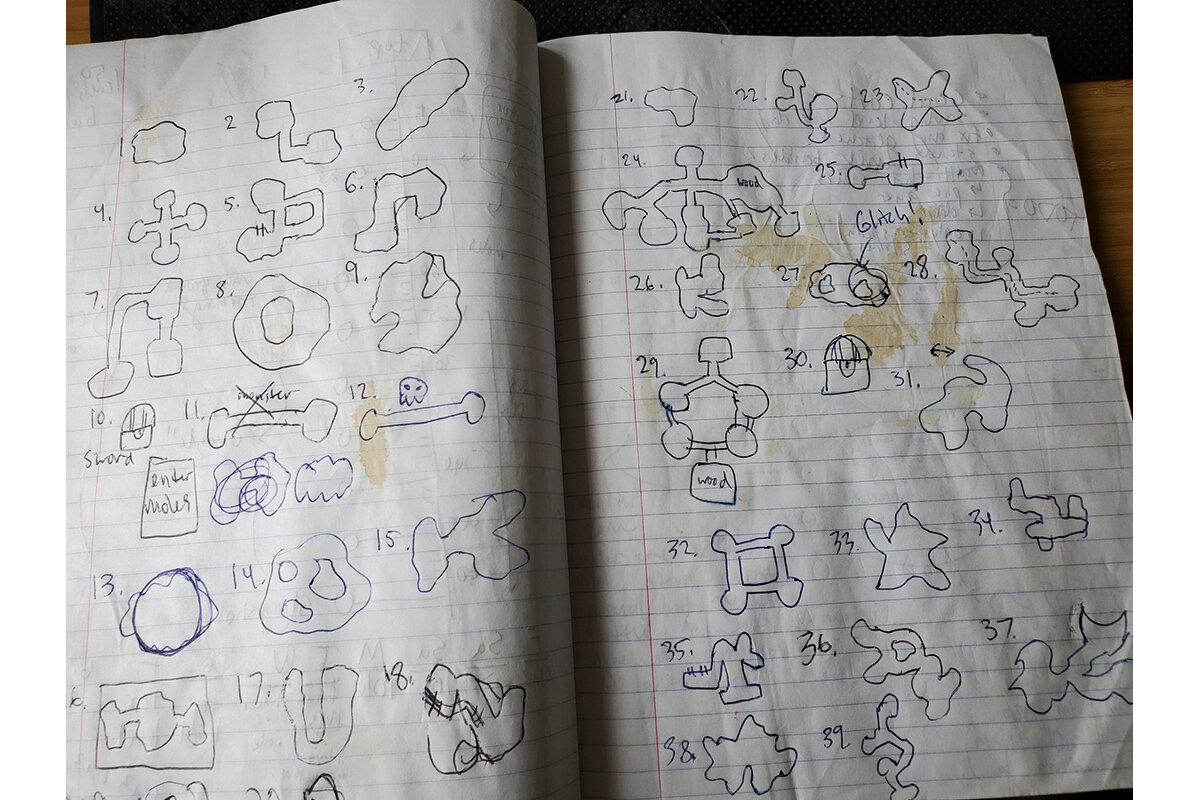 1
2
3.
4.
5.
6.
7.
8.
9.
10.
sword
11.
monster
12.
enter
moles
13.
14.
15.
17.
18.
20.
21.
22.
23.
24.
wood
25.
Glitch!
26.
27.
28.
29.
wood
30.
31.
32.
33.
34.
35.
36.
37.
38.
39.